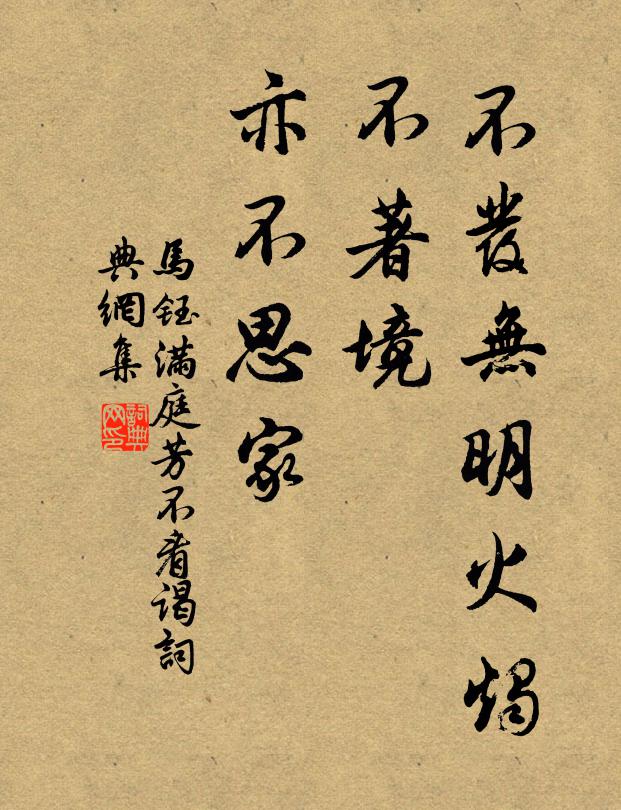 不發無明火燭
不著境
亦不思家
馬鈺滿庭芳不看謁詞
典網集
詞典网印